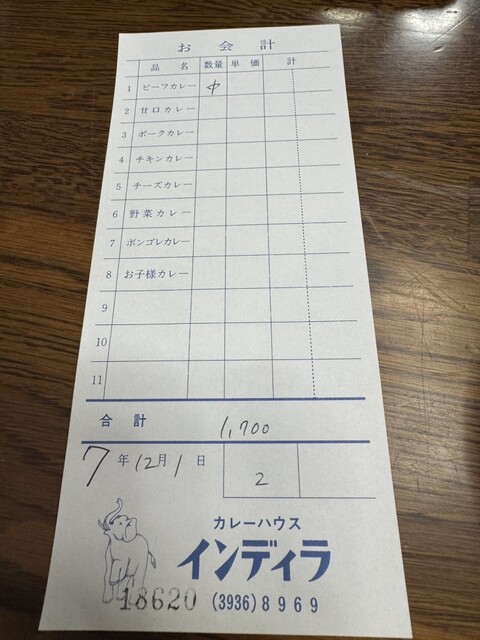 お会計
品名 数量 単価 計
1 ビーフカレー 中
2 甘口カレー
3 ポークカレー
4 チキンカレー
5 チーズカレー
6 野菜カレー
7 ボンゴレカレー
8 お子様カレー
9
10
11
合計 1,700
7年12月1日
2
カレーハウス
インディラ
18620 (3936)8969